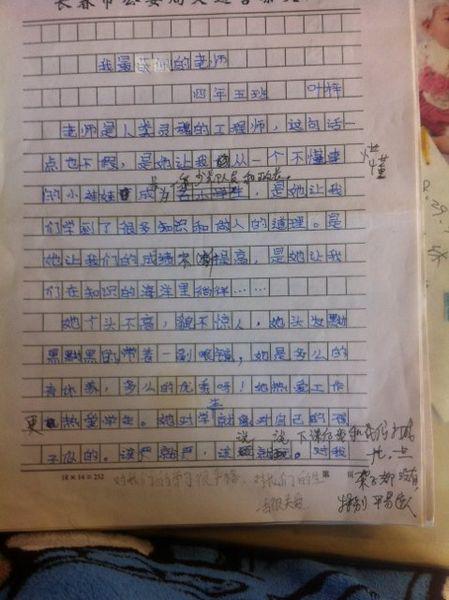 我最敬佩的老师
四年五班 叶梓
老师是人类灵魂的工程师，这句话一
点也不假，是她让我从一个不懂事
懂
的小娃娃成为名少先队员，是她让我
们学到了很多知识和做人的道理。是
她让我们的成绩不断提高，是她让我
们在知识的海洋里徜徉……
她个头不高，貌不惊人，她头发黝
黑黝黑的带着一副眼镜，她是多么的
有休养，多么的优秀呀！她热爱工作
更热爱学生。她对学生就像对自己的孩
子似的。该严就严，该说就说。对我
下课后爱和我们
18×14=252
第
对我们的学习很严格，对我们的生
活很关心
一点
架子都没有
特别平易近人